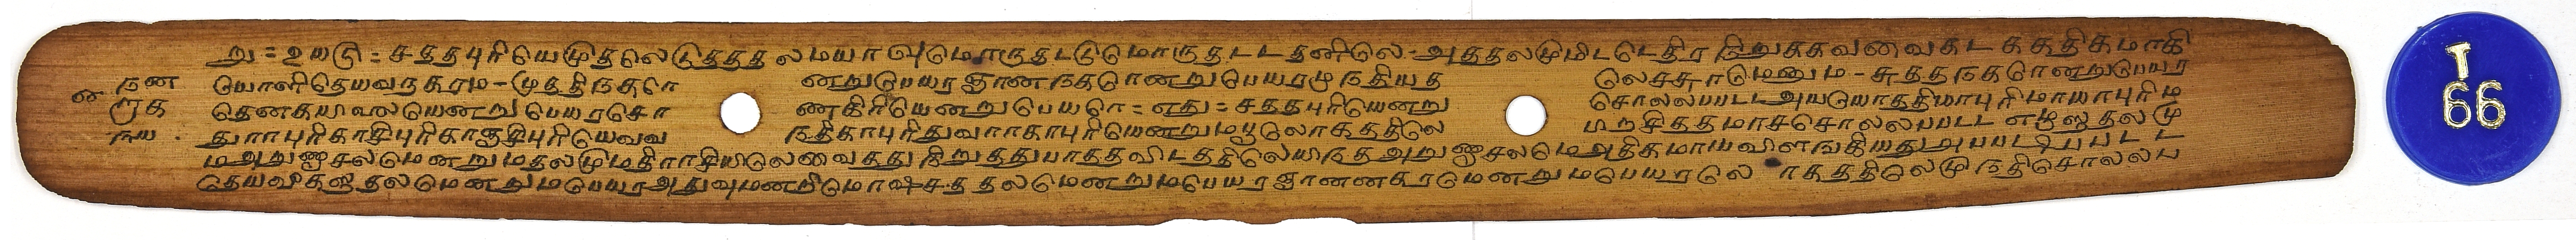 று = உயடு = சத்தபுரியெமுதலெடுத்தத லமயாவுமொருதட்டுமொருதட்டதனிலே - அத்தலமுமிட்டெதிர நிறுக்கவவைகட்கதிகமாகி
நன யொளிதெயவநகரம - முத்திநகரொ ன்றுபெயர ஞானநகரொன்றுபெயரமுநதியத லெசசுரமெனும - சுத்தநகரொன்றுபெயர
றக தெனகயிலையென்று பெயரசொ ணகிரியென்றுபெயரெ = எது = சத்தபுரியென்று சொல்லபபட்டஅயடியாத்திமாபுரிமாயாபுரிம
ளய துராபுரிகாசிபுரிகாஞசிபுரியெவவ நதிகாபுரிதுவாராகாபுரியென்றுமபூலொகத்திலெ பரசித்தமாசசொல்லபபட்ட எழுஸதலமு
மஅருணாசலமென்றுமதலமுமதிராசியிலெவைத்து நிறுத்துபாத்தவிடத்திலெயிநத அருணாசலமெஅதிகமாயவிளஙகியதுஅபபடிபபட்ட
தெயவீகஸதலமென்றுமபெயரஅதுவுமன்றிமொக்ஷசத தலமென்றுமபெயர ஞானநகரமென்றுமபெயரலெ ாகத்திலெமுநதிசொல்லப
T
66